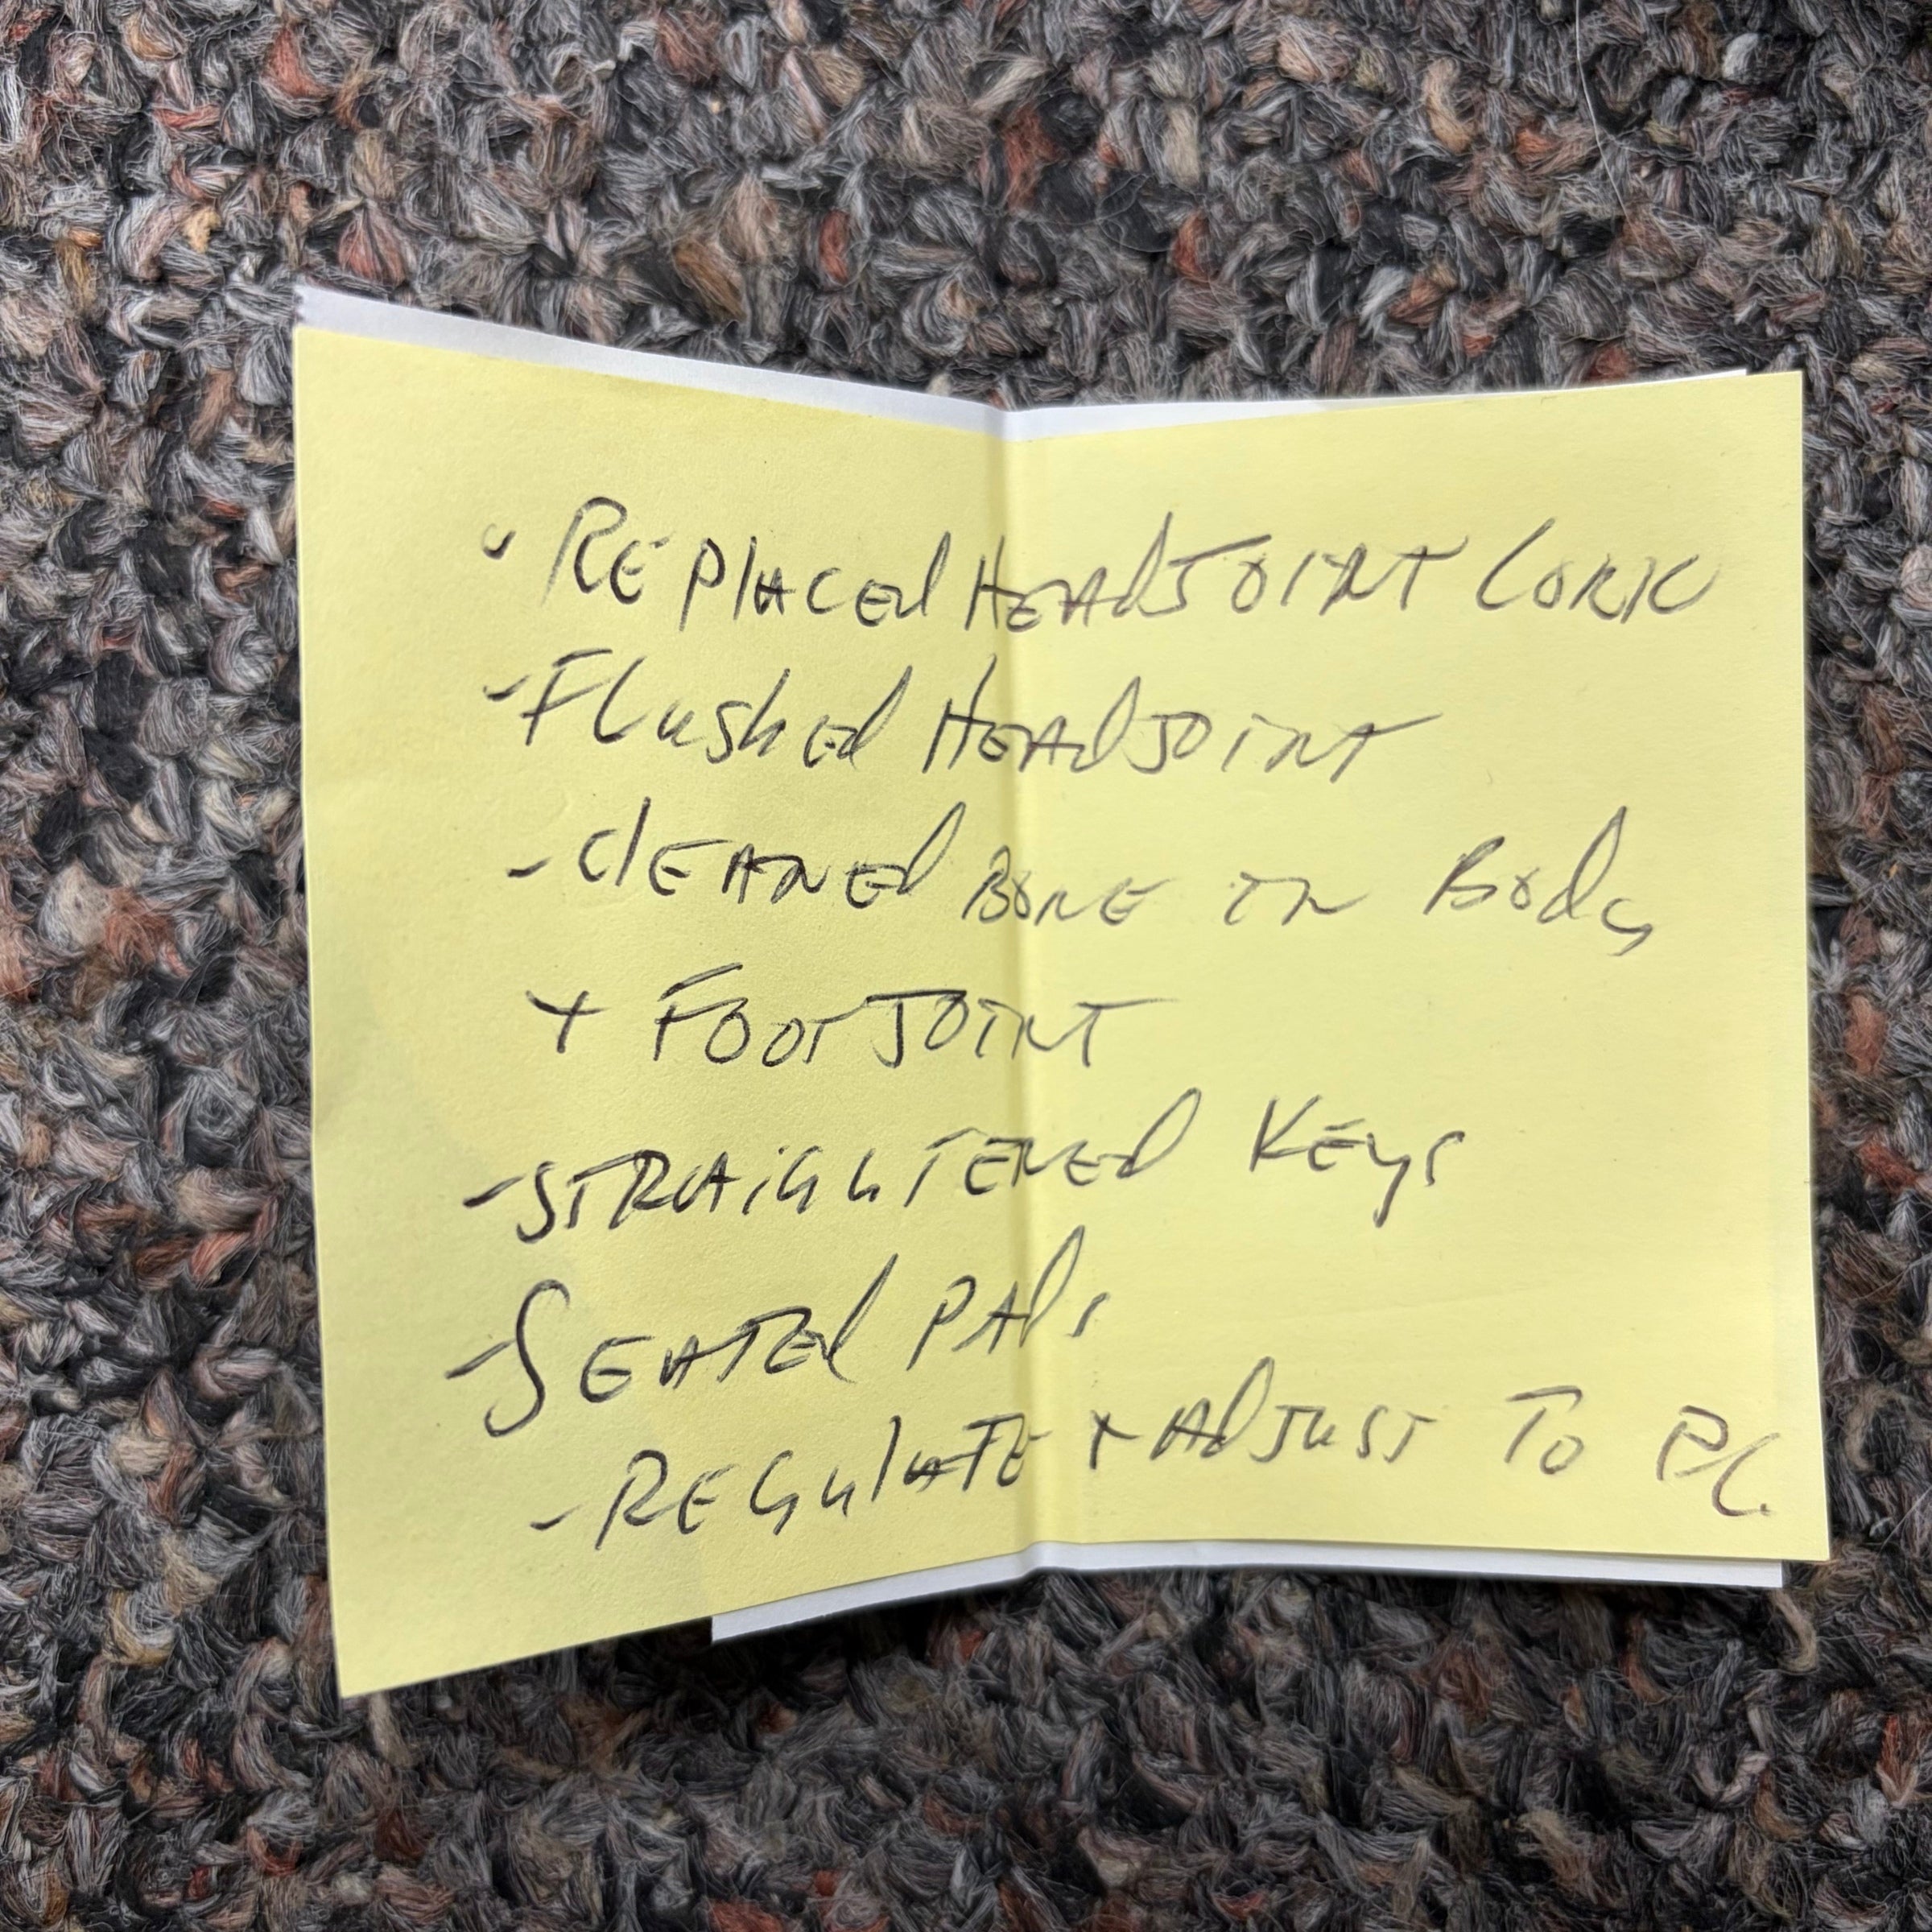 - REPlACEd HEAdJOINT CORK
- FLushed HEAdJOINT
- ClEANEd BORE IN Body
+ FOOT JOINT
- STRAiGhTENEd KEys
- SEATEd PAds
- REGulATE + AdJusT To PC.